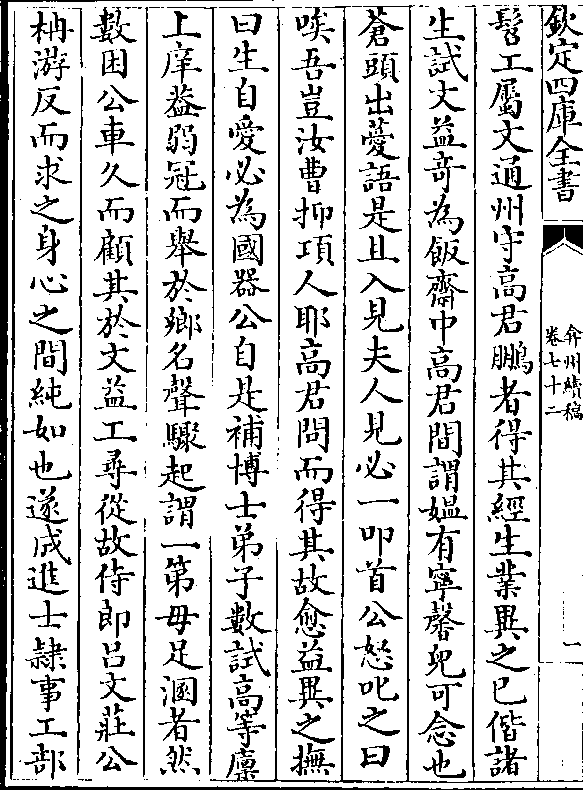 欽定四庫全書
弇州續稿
卷七十二
一
髫工屬文通州守高君鵬者得其經生業異之已偕諸
生試文益奇為飯齋中高君間謂媼有寧馨兒可念也
蒼頭出薆語是且入見夫人見必一叩首公怒叱之曰
唉吾豈汝曹抑項人耶高君問而得其故愈益異之撫
曰生自愛必為國器公自是補博士弟子數試高等廩
上庠葢弱冠而舉於鄉名聲驟起謂一第毋足溷者然
數困公車久而顧其於文益工尋從故侍郎吕文莊公
柟游反而求之身心之間純如也遂成進士隷事工部